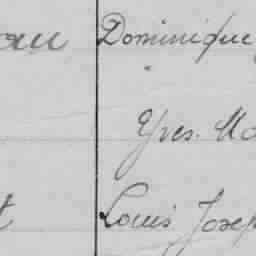 au Dominique
Yves. Ma
t Louis Josep